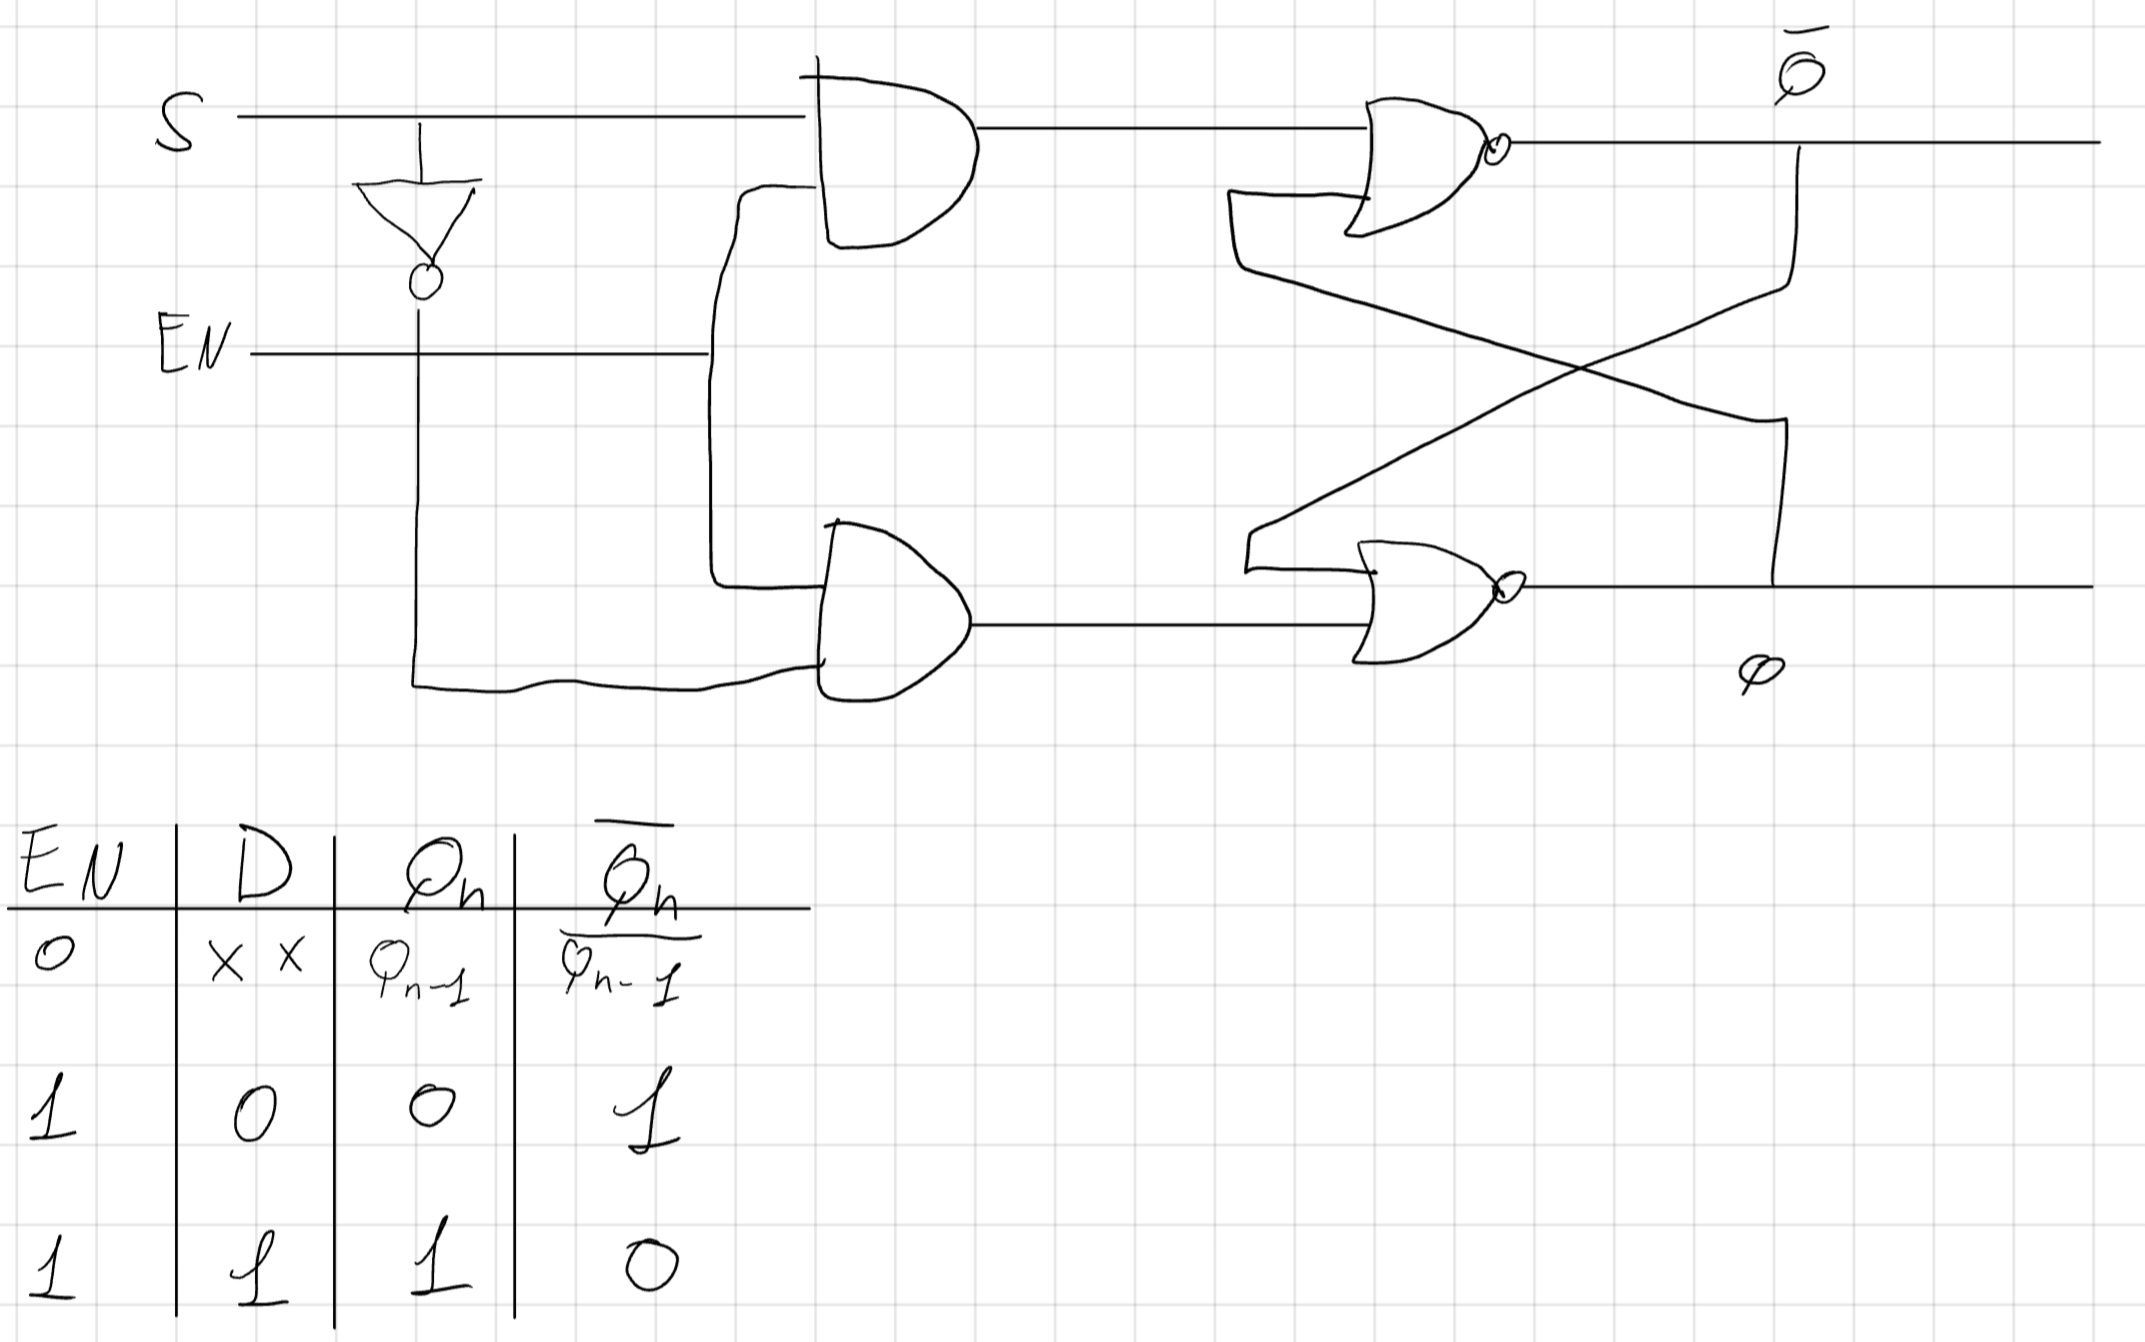 Q̅
S
EN
Q
EN D Qn Q̅n
0 x x Qn-1 Q̅n-1
1 0 0 1
1 1 1 0